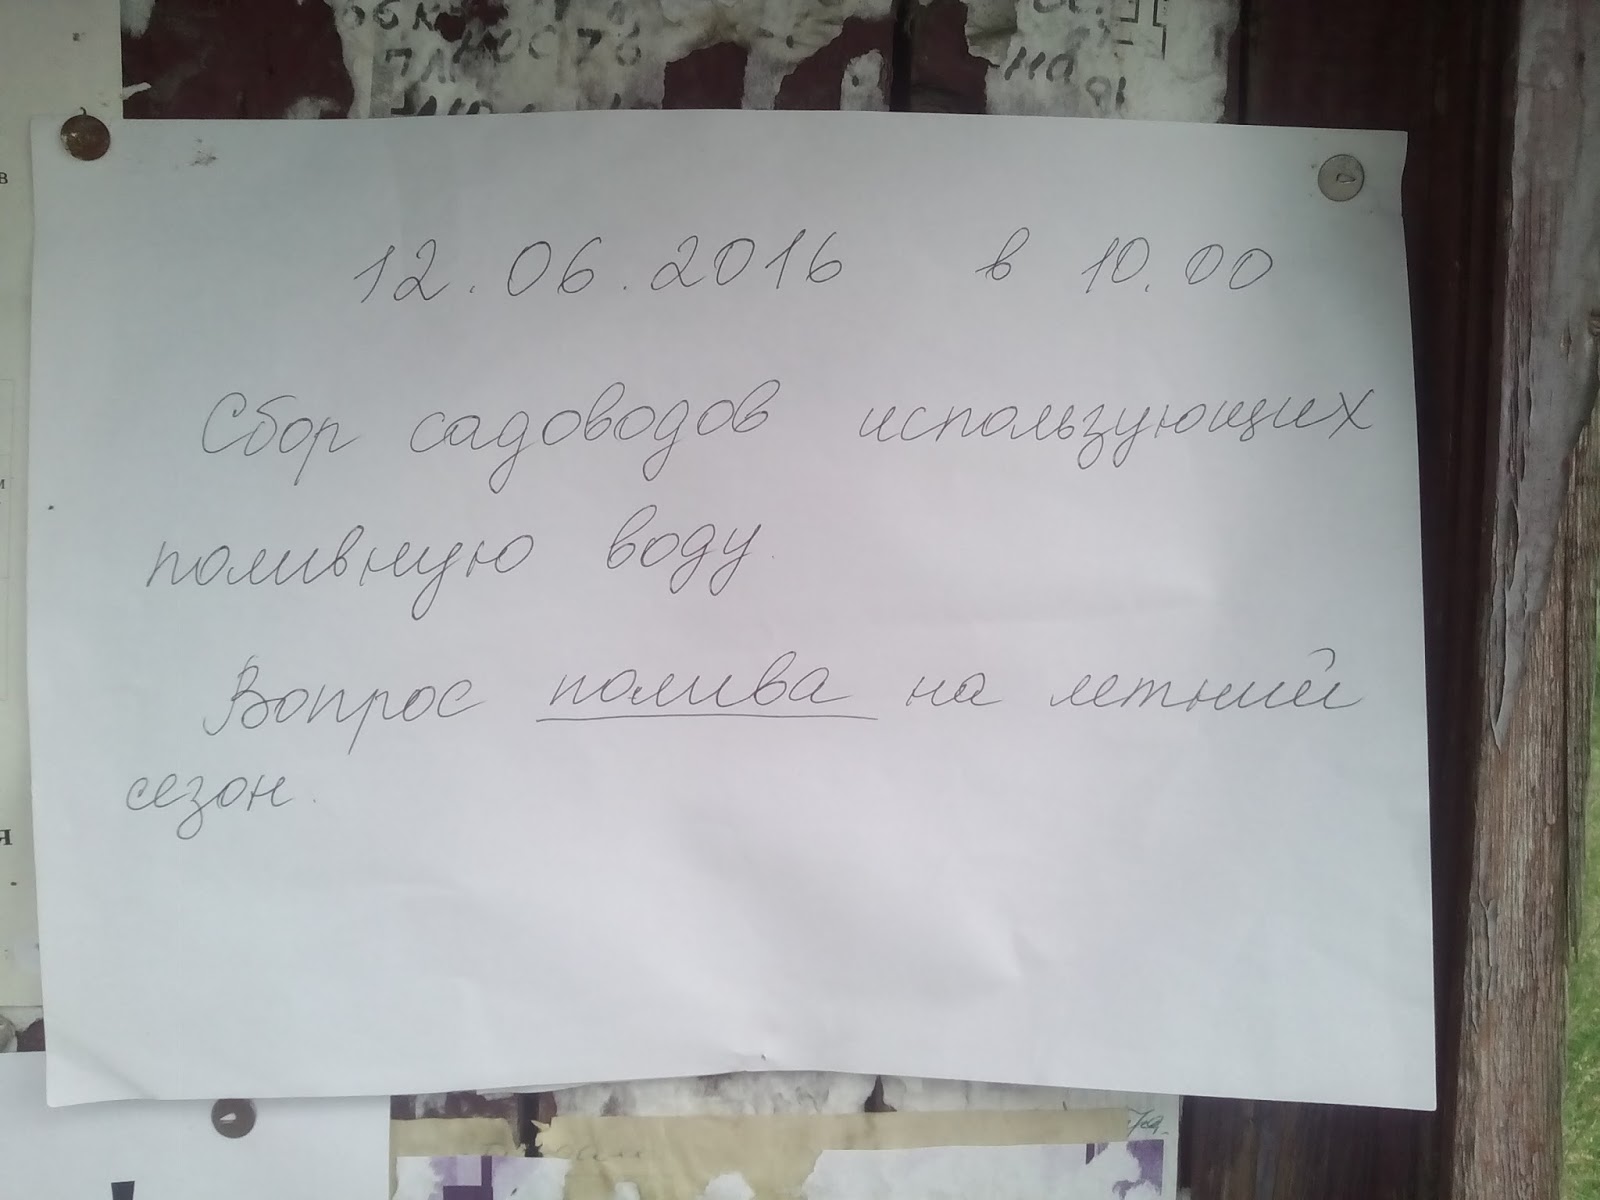 12.06.2016 в 10.00
Сбор садоводов использующих
поливную воду.
Вопрос полива на летний
сезон.